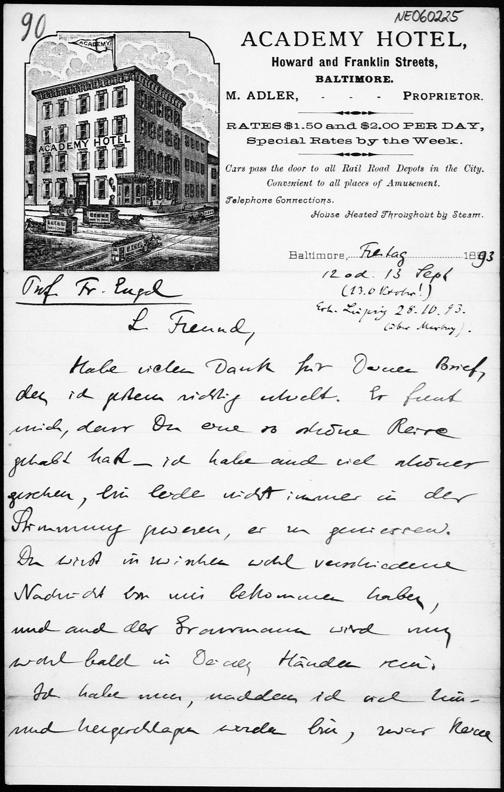 90
NE060225
ACADEMY
ACADEMY HOTEL
ACADEMY HOTEL,
Howard and Franklin Streets,
BALTIMORE.
M. ADLER, - - - PROPRIETOR.
RATES $1.50 and $2.00 PER DAY,
Special Rates by the Week.
Cars pass the door to all Rail Road Depots in the City.
Convenient to all places of Amusement.
Telephone Connections.
House Heated Throughout by Steam.
Baltimore, Freitag 1893
12 od. 13 Sept
(13. Oktober!)
Erh. Leipzig 28.10.93.
Prof. Fr. Engel
L. Freund,
Habe vielen Dank für Deinen Brief,
den ich gestern richtig erhielt. Es freut
mich, dass Du eine so schöne Reise
gehabt hast – ich habe auch viel schönes
gesehen, bin leider nicht immer in der
Stimmung gewesen, es zu geniessen.
Du wirst inzwischen wohl verschiedene
Nachricht von mir bekommen haben,
und auch der wird nun
wohl bald in Deinen Händen sein.
Ich habe nun, nachdem ich viel hin-
und hergeschlagen worden bin, zwar keine